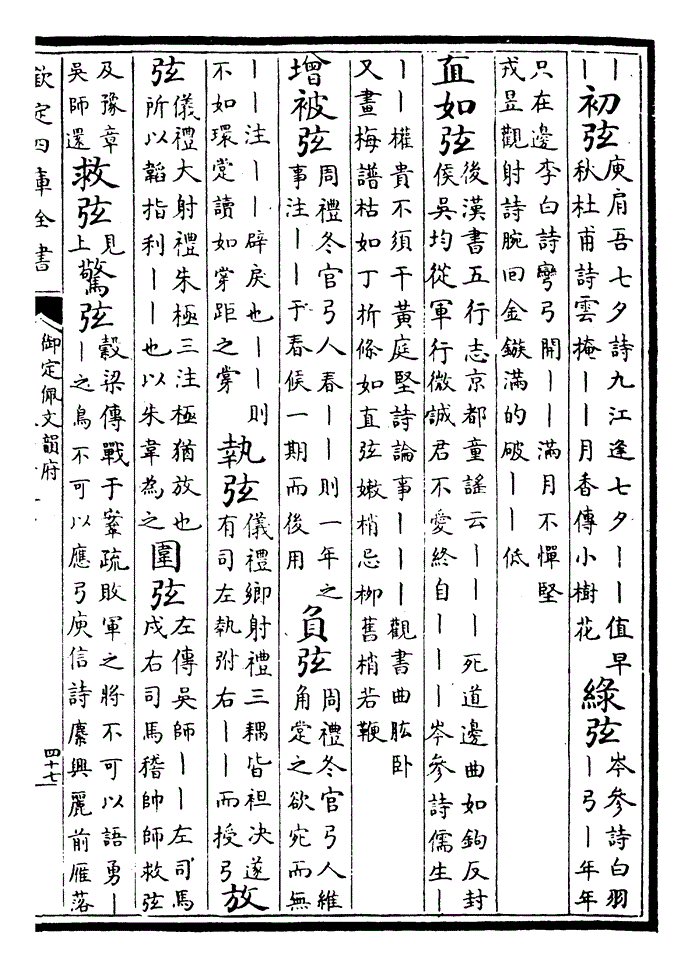 丨丨初弦庾肩吾七夕詩九江逢七夕丨丨值早
秋杜甫詩雲掩丨丨月香傳小樹花綠弦岑參詩白羽
丨弓丨年年
只在邊李白詩彎弓開丨丨滿月不憚堅
戎昱觀射詩腕回金鏃滿的破丨丨低
直如弦後漢書五行志京都童謠云丨丨丨死道邊曲如鉤反封
侯吳均從軍行微誠君不愛終自丨丨丨岑參詩儒生丨
丨丨權貴不須干黃庭堅詩論事丨丨丨觀書曲肱卧
又畫梅譜枯如丁折條如直弦嫩梢忌柳舊梢若鞭
增被弦周禮冬官弓人春丨丨則一年之
事注丨丨于春候一期而後用負弦周禮冬官弓人維
角䟫之欲宛而無
丨丨注丨丨辟戾也丨丨則
不如環䟫讀如牚距之牚執弦儀禮鄉射禮三耦皆袒決遂
有司左執弣右丨丨而授弓放
弦儀禮大射禮朱極三注極猶放也
所以韜指利丨丨也以朱韋為之圍弦左傳吳師丨丨左司馬
戍右司馬稽帥師救弦
及豫章
吳師還救弦見
上驚弦穀梁傳戰于鞌疏敗軍之將不可以語勇丨
丨之鳥不可以應弓庾信詩麋興麗前雁落
欽定四庫全書
御定佩文韻府
四十七